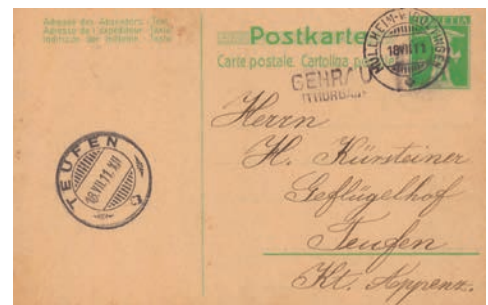 Adresse des Absenders: Text
Adresse de l'expéditeur: Texte
Indirizzo del mittente: Testo
Postkarte
Carte postale. Cartolina
HELVETIA
MÜLLHEIM-WIGOLTINGEN
18.VII.11
GEHRAU
(THURGAU)
Herrn
H. Kürsteiner
Geflügelhof
Teufen
Kt. Appenz.
TEUFEN
18.VII.11.